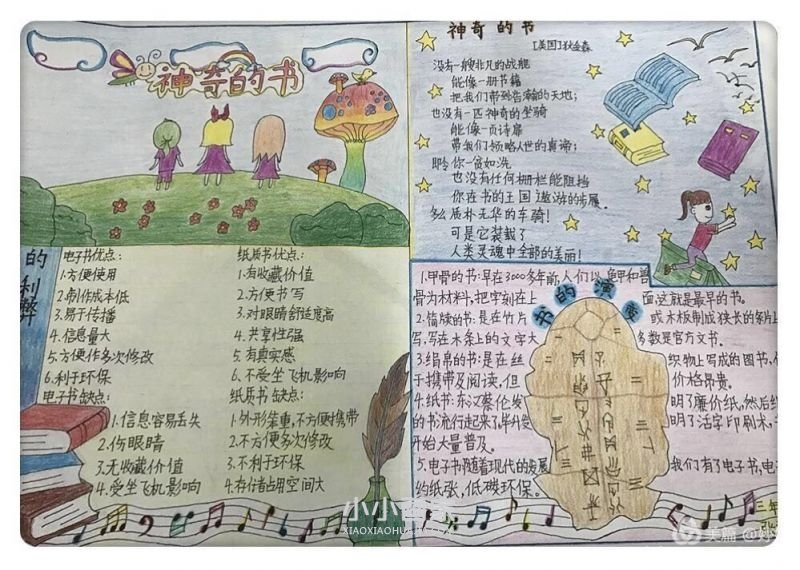 神奇的书
电子书优点:
1.方便使用
2.制作成本低
3.易于传播
4.信息量大
5.方便作多次修改
6.利于环保
电子书缺点:
1.信息容易丢失
2.伤眼睛
3.无收藏价值
4.受坐飞机影响
纸质书优点:
1.有收藏价值
2.方便书写
3.对眼睛舒适度高
4.共享性强
5.有真实感
6.不受坐飞机影响
纸质书缺点:
1.外形笨重,不方便携带
2.不方便多次修改
3.不利于环保
4.存储占用空间大
的利弊
神奇的书
[美国]狄金森
没有一艘非凡的战舰
能像一册书籍
把我们带到浩瀚的天地;
也没有一匹神奇的坐骑
能像一页诗扉
带我们领略人世的真谛;
即令你一贫如洗
也没有任何栅栏能阻挡
你在书的王国遨游的步履。
多么质朴无华的车骑!
可是它装载了
人类灵魂中全部的美丽!
书的演变
1.甲骨的书:早在3000多年前,人们以龟甲和兽
骨为材料,把字刻在上面这就是最早的书。
2.简牍的书:是在竹片或木板制成狭长的条片上
写,写在木条上的文字大多数是官方文书。
3.绢帛的书:是在丝织物上写成的图书,便
于携带及阅读,但价格昂贵。
4.纸书:东汉蔡伦发明了廉价纸,然后纸
的书流行起来了,毕升发明了活字印刷术,
开始大量普及。
5.电子书随着现代的发展我们有了电子书,电
约纸张,低碳环保。
三年
XIAOXIAOHUA
美篇